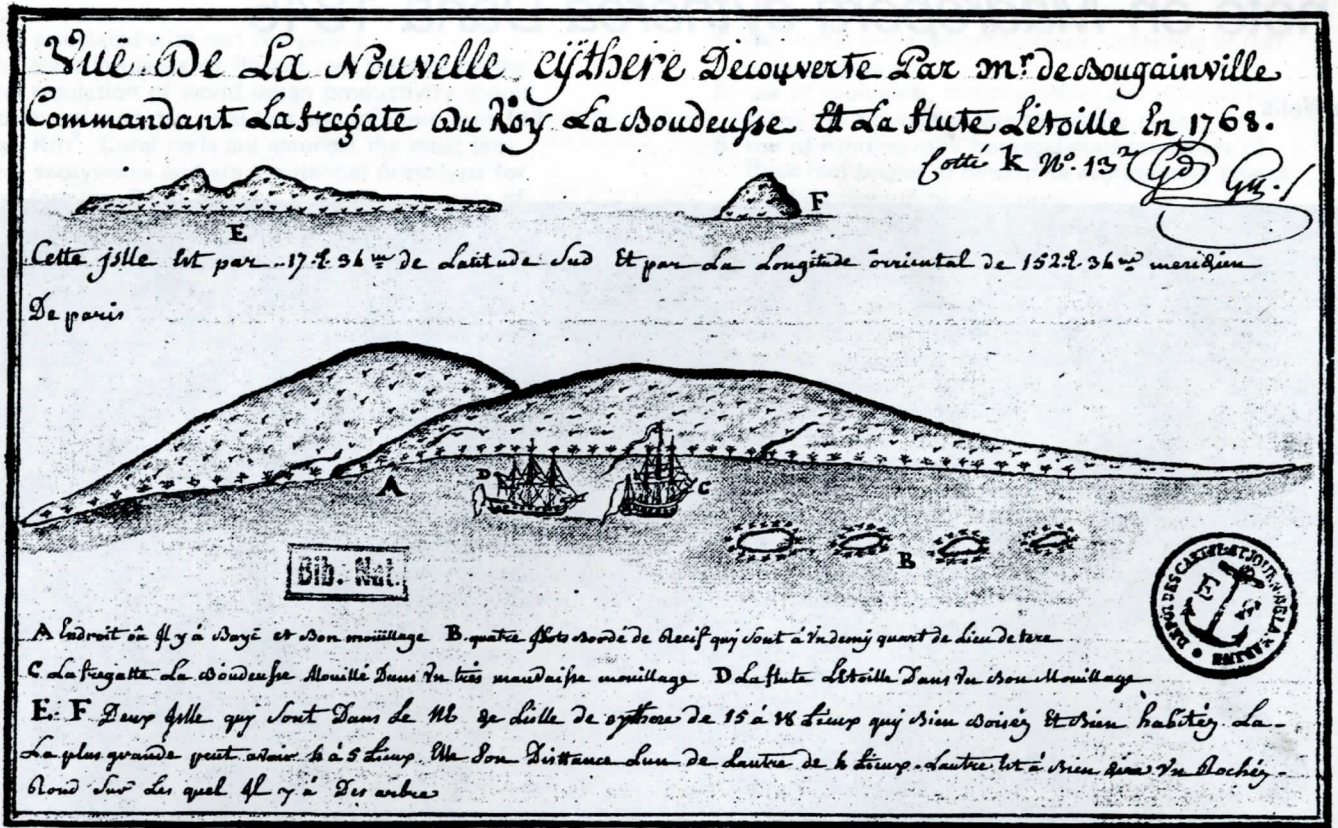 Vuë De La Nouvelle cÿthere Decouverte Par mr. de Bougainville
Commandant La fregate Du Roy La Boudeusse Et La flute L'étoille En 1768.
Cotte k No. 13
F
E
Cette jslle Est par 17 36 de Latitude Sud Et par La Longitude orriental de 152 36 meridien
De paris
A
D
C
B
Bib. Nat.
DÉPOT DES CARTES ET JOURN. DE LA MARINE
A Endroit où Jl y à Baye et Bon moüillage B. quatre jlots Bordé de Recif qui Sont à Vn demy quart de Lieu de tere
C La fregatte La Boudeusse Mouillé Dans Vn très mauvaisse mouillage D La flute L'étoille Dans Vn Bon Mouillage
E. F Deux jslle qui Sont Dans Le NE de Lislle de cythere de 15 à 18 Lieux qui Bien Boisés Et Bien habités La-
La plus grande peut avoir 4 à 5 Lieux. Elle Son Disttance Lun de Lautre de 4 Lieux. Lautre Est à Bien dire Vn Rochés-
Rond Sur Les quel Jl y à Des arbre